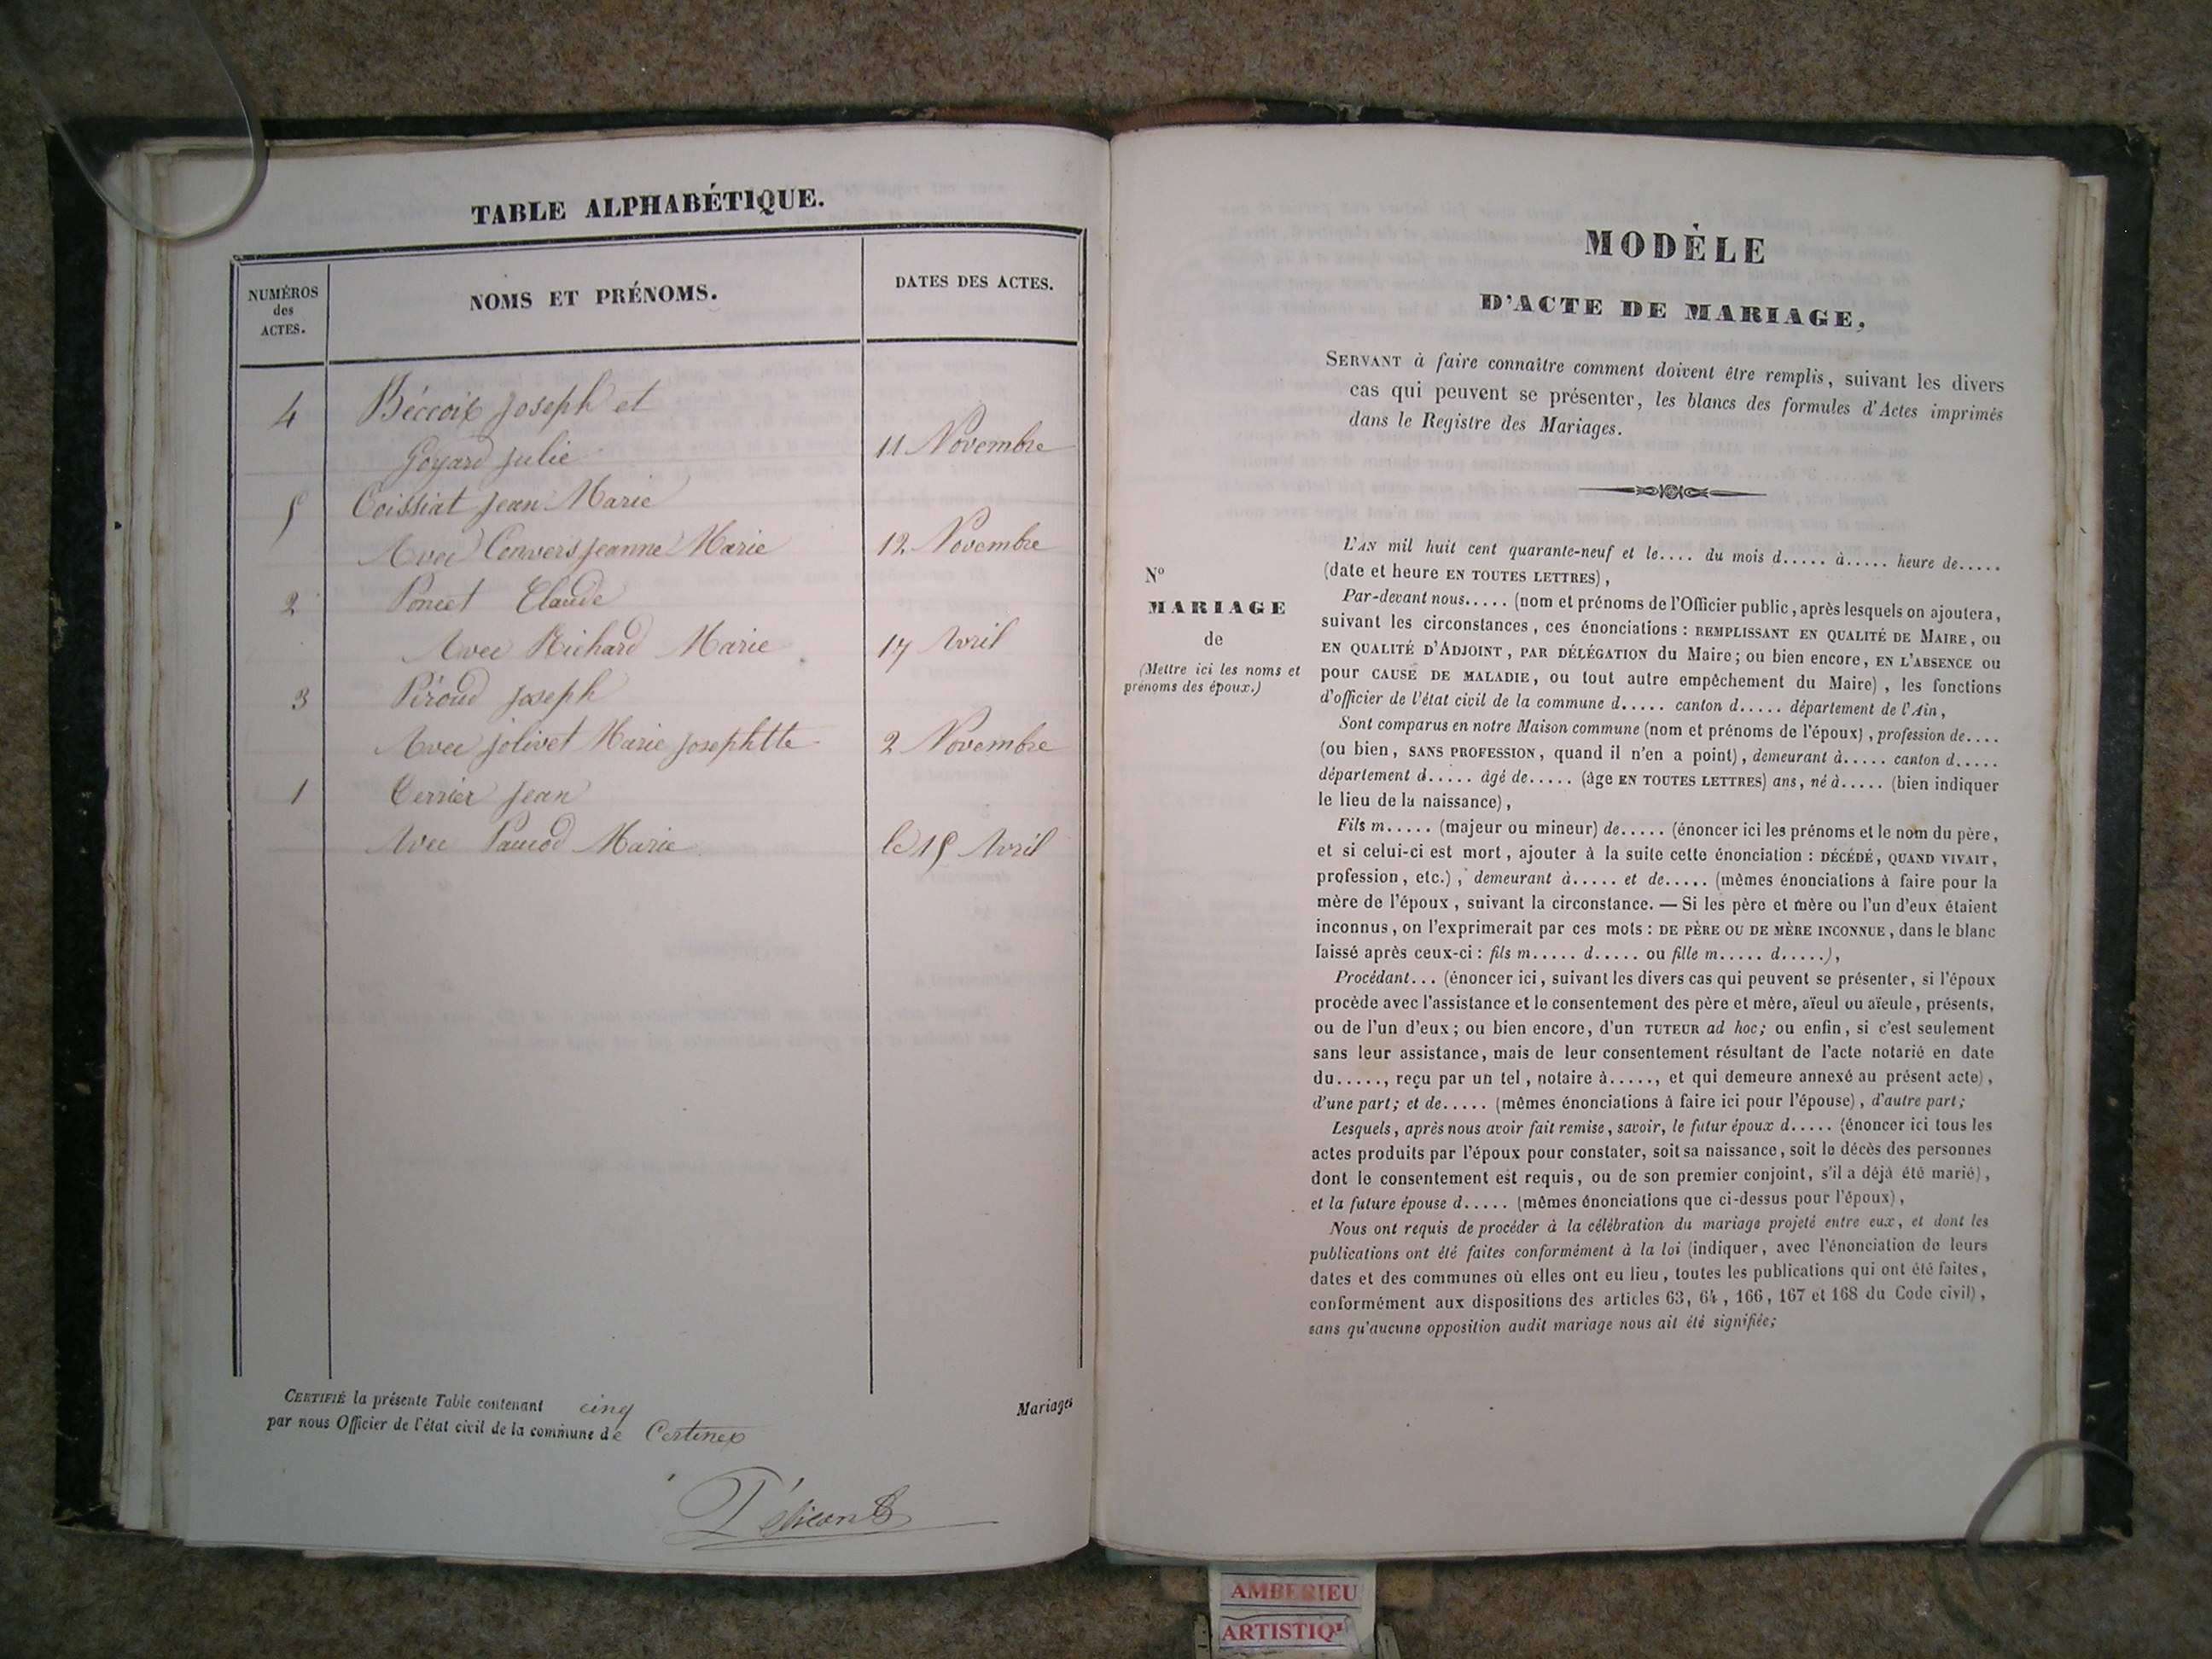 TABLE ALPHABÉTIQUE.
NUMÉROS
des
ACTES.
NOMS ET PRÉNOMS.
DATES DES ACTES.
4 Joseph et
Goyard Julie 11 Novembre
5 Coissiat Jean Marie
Avec Convers Jeanne Marie 12 Novembre
2 Poncet Claude
Avec Richard Marie 17 Avril
3 Piroud Joseph
Avec Jolivet Marie Josephtte 2 Novembre
1 Terrier Jean
Avec Marie le 15 Avril
CERTIFIÉ la présente Table contenant cinq Mariages
par nous Officier de l'état civil de la commune de
MODÈLE
D'ACTE DE MARIAGE,
SERVANT à faire connaître comment doivent être remplis, suivant les divers
cas qui peuvent se présenter, les blancs des formules d'Actes imprimés
dans le Registre des Mariages.
N°
MARIAGE
de
(Mettre ici les noms et
prénoms des époux.)
L'AN mil huit cent quarante-neuf et le.... du mois d..... à..... heure de.....
(date et heure EN TOUTES LETTRES),
Par-devant nous..... (nom et prénoms de l'Officier public, après lesquels on ajoutera,
suivant les circonstances, ces énonciations : REMPLISSANT EN QUALITÉ DE MAIRE, ou
EN QUALITÉ D'ADJOINT, PAR DÉLÉGATION du Maire; ou bien encore, EN L'ABSENCE ou
pour CAUSE DE MALADIE, ou tout autre empêchement du Maire), les fonctions
d'officier de l'état civil de la commune d..... canton d..... département de l'Ain,
Sont comparus en notre Maison commune (nom et prénoms de l'époux), profession de....
(ou bien, SANS PROFESSION, quand il n'en a point), demeurant à..... canton d.....
département d..... âgé de..... (âge EN TOUTES LETTRES) ans, né à..... (bien indiquer
le lieu de la naissance),
Fils m..... (majeur ou mineur) de..... (énoncer ici les prénoms et le nom du père,
et si celui-ci est mort, ajouter à la suite cette énonciation : DÉCÉDÉ, QUAND VIVAIT,
profession, etc.), demeurant à..... et de..... (mêmes énonciations à faire pour la
mère de l'époux, suivant la circonstance. — Si les père et mère ou l'un d'eux étaient
inconnus, on l'exprimerait par ces mots : DE PÈRE OU DE MÈRE INCONNUE, dans le blanc
laissé après ceux-ci : fils m..... d..... ou fille m..... d.....),
Procédant... (énoncer ici, suivant les divers cas qui peuvent se présenter, si l'époux
procède avec l'assistance et le consentement des père et mère, aïeul ou aïeule, présents,
ou de l'un d'eux; ou bien encore, d'un TUTEUR ad hoc; ou enfin, si c'est seulement
sans leur assistance, mais de leur consentement résultant de l'acte notarié en date
du....., reçu par un tel, notaire à....., et qui demeure annexé au présent acte),
d'une part; et de..... (mêmes énonciations à faire ici pour l'épouse), d'autre part;
Lesquels, après nous avoir fait remise, savoir, le futur époux d..... (énoncer ici tous les
actes produits par l'époux pour constater, soit sa naissance, soit le décès des personnes
dont le consentement est requis, ou de son premier conjoint, s'il a déjà été marié),
et la future épouse d..... (mêmes énonciations que ci-dessus pour l'époux),
Nous ont requis de procéder à la célébration du mariage projeté entre eux, et dont les
publications ont été faites conformément à la loi (indiquer, avec l'énonciation de leurs
dates et des communes où elles ont eu lieu, toutes les publications qui ont été faites,
conformément aux dispositions des articles 63, 64, 166, 167 et 168 du Code civil),
sans qu'aucune opposition audit mariage nous ait été signifiée;
AMBERIEU
ARTISTIQ